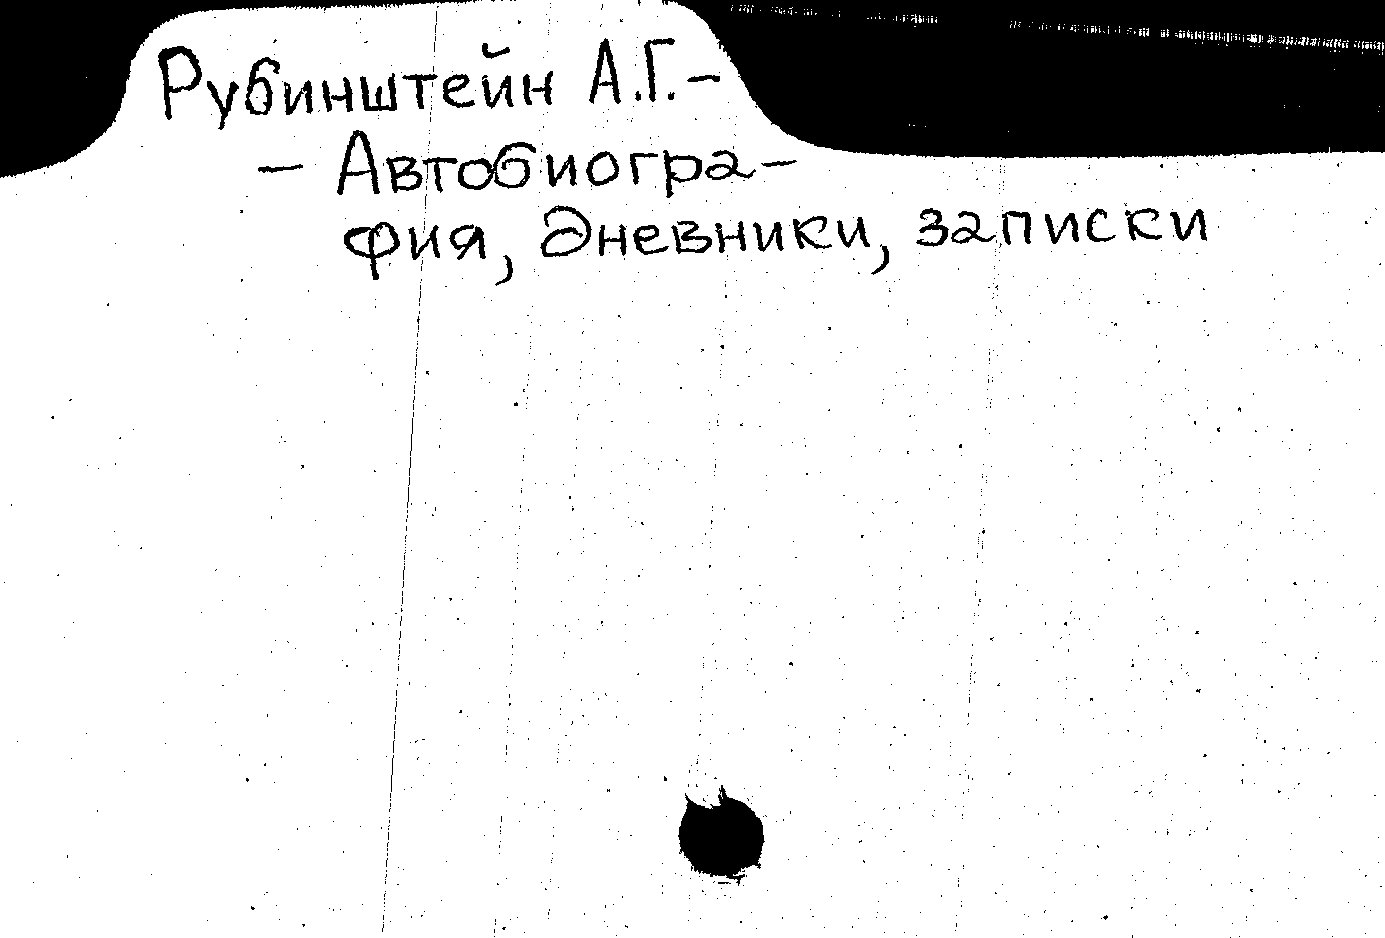 Рубинштейн А.Г.–
– Автобиогра–
фия, дневники, записки